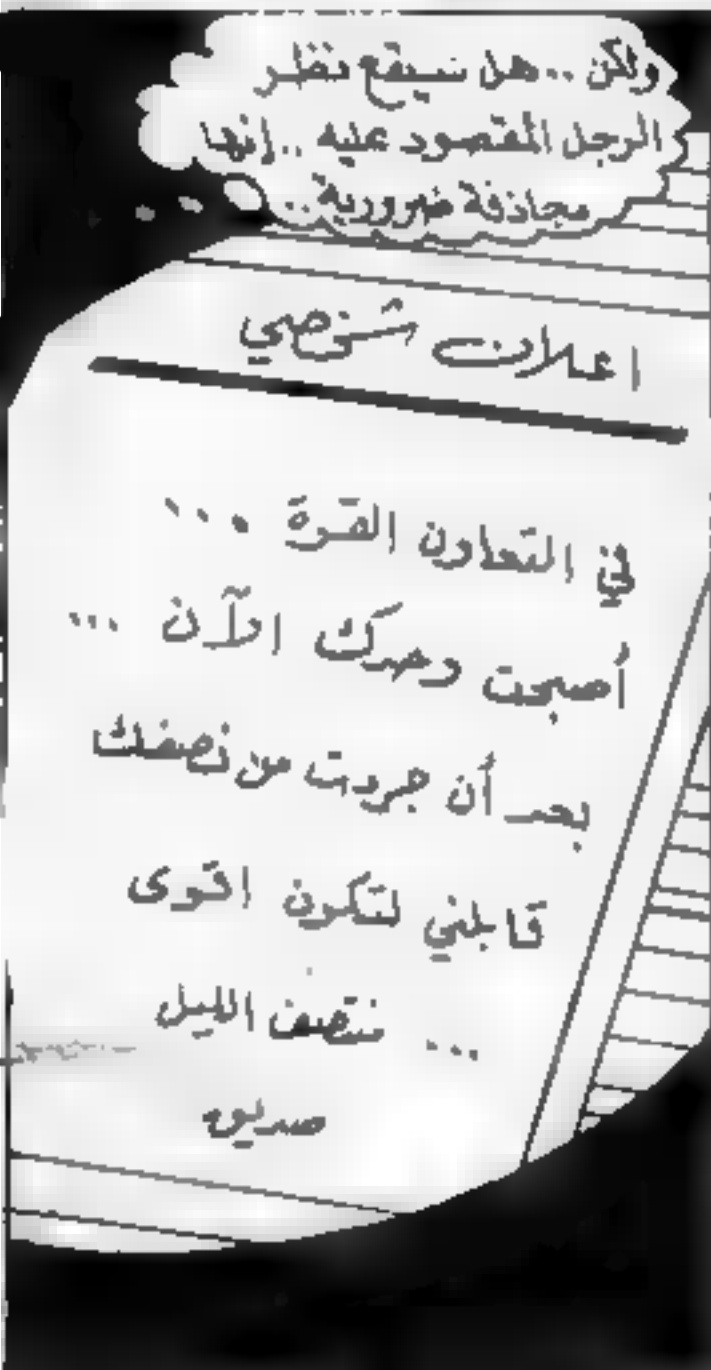 ولكن .. هل سيقع نظر
الرجل المقصود عليه .. إنها
مجازفة ضرورية ..
اعلان شخصي
في التعاون القوة ...
أصبحت وحدك الآن ...
بعد أن جردت من نصفك
قابلني لتكون اقوى
... منتصف الليل
صديق